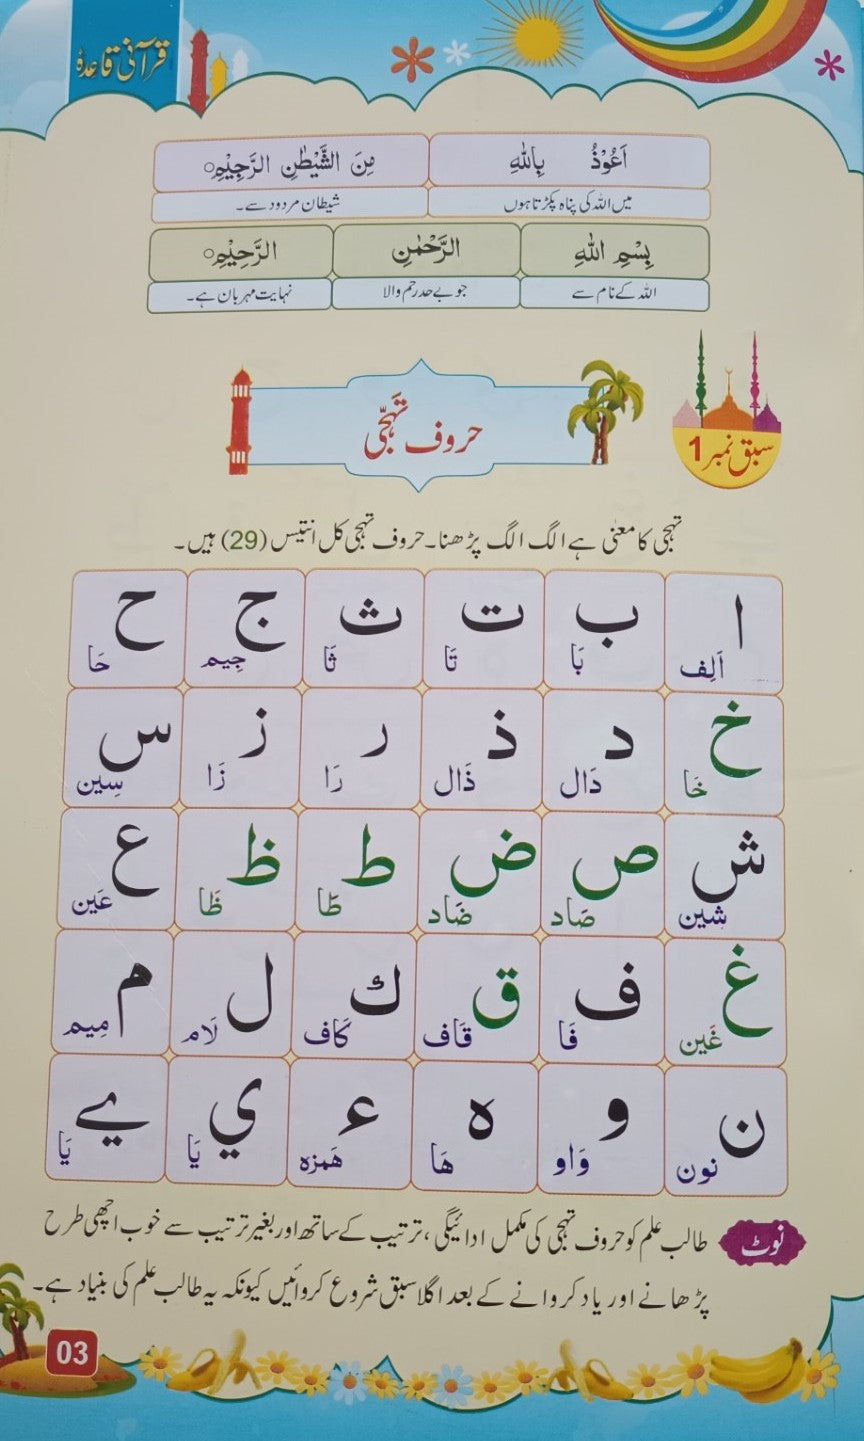 قرآنی قاعدہ
اَعُوْذُ بِاللّٰهِ مِنَ الشَّيْطٰنِ الرَّجِيْمِ○
میں اللہ کی پناہ پکڑتا ہوں شیطان مردود سے۔
بِسْمِ اللّٰهِ الرَّحْمٰنِ الرَّحِيْمِ○
اللہ کے نام سے جو بے حد رحم والا نہایت مہربان ہے۔
سبق نمبر 1
حروف تہجّی
تہجی کا معنیٰ ہے الگ الگ پڑھنا۔ حروف تہجی کل انتیس (29) ہیں۔
ا ب ت ث ج ح
اَلِف بَا تَا ثَا جِيم حَا
خ د ذ ر ز س
خَا دَال ذَال رَا زَا سِين
ش ص ض ط ظ ع
شين صَاد ضَاد طَا ظَا عَين
غ ف ق ك ل م
غَين فَا قَاف كَاف لَام مِيم
ن و ه ء ي ے
نون وَاو هَا هَمزه يَا يَا
نوٹ طالب علم کو حروف تہجی کی مکمل ادائیگی، ترتیب کے ساتھ اور بغیر ترتیب سے خوب اچھی طرح
پڑھانے اور یاد کروانے کے بعد اگلا سبق شروع کروائیں کیونکہ یہ طالب علم کی بنیاد ہے۔
03